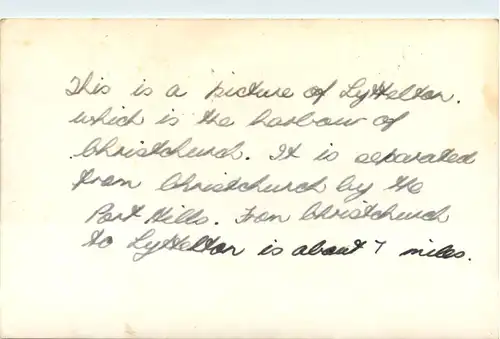 This is a picture of Lyttelton.
which is the harbour of
Christchurch. It is separated
from Christchurch by the
Port Hills. From Christchurch
to Lyttelton is about 7 miles.